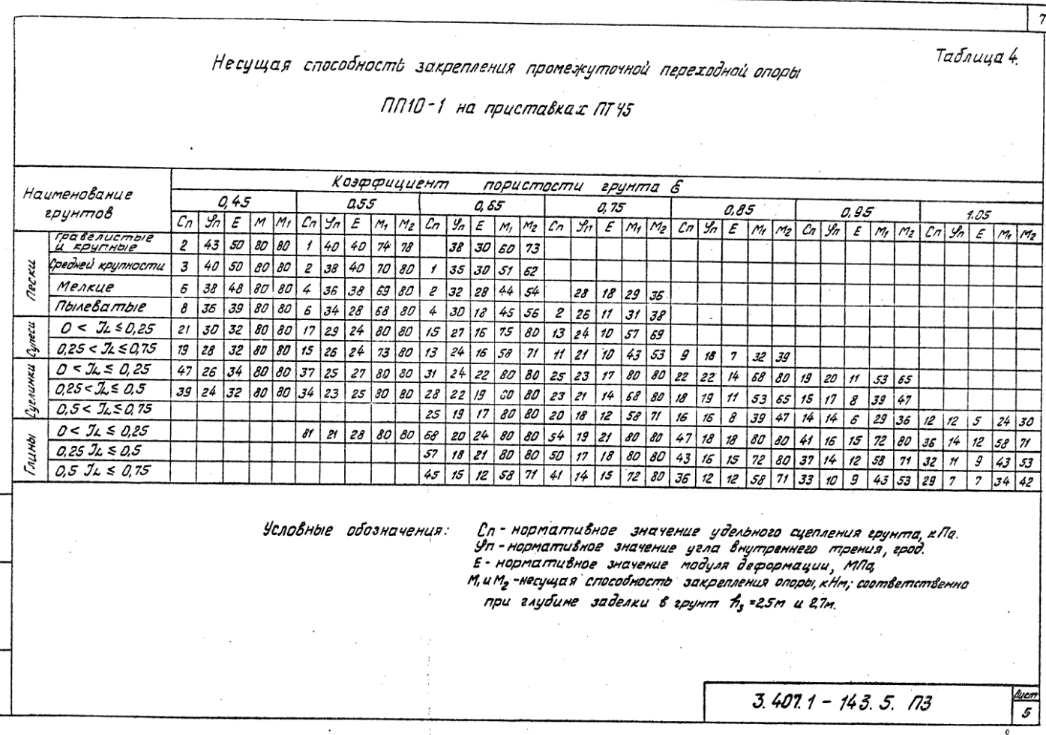 7
Таблица 4.
Несущая способность закрепления промежуточной переходной опоры
ПП10-1 на приставках ПТ45
Наименование грунтов
Коэффициент пористости грунта
0,45 0.55 0,65 0,75 0,85 0,95 1.05
Сп Уп Е М М1 Сп Уп Е М1 М2 Сп Уп Е М1 М2 Сп Уп Е М1 М2 Сп Уп Е М1 М2 Сп Уп Е М1 М2 Сп Уп Е М1 М2
Пески
Гравелистые и крупные 2 43 50 80 80 1 40 40 74 78 38 30 60 73
Средней крупности 3 40 50 80 80 2 38 40 70 80 1 35 30 51 62
Мелкие 6 38 48 80 80 4 36 38 69 80 2 32 28 44 54 28 18 29 36
Пылеватые 8 36 39 80 80 6 34 28 68 80 4 30 18 45 56 2 26 11 31 38
Супеси
0 < JL ≤ 0,25 21 30 32 80 80 17 29 24 80 80 15 27 16 75 80 13 24 10 57 69
0,25 < JL ≤ 0,75 19 28 32 80 80 15 26 24 73 80 13 24 16 58 71 11 21 10 43 53 9 18 7 32 39
Суглинки
0 < JL ≤ 0,25 47 26 34 80 80 37 25 27 80 80 31 24 22 80 80 25 23 17 80 80 22 22 14 68 80 19 20 11 53 65
0,25 < JL ≤ 0,5 39 24 32 80 80 34 23 25 80 80 28 22 19 80 80 23 21 14 68 80 18 19 11 53 65 15 17 8 39 47
0,5 < JL ≤ 0,75 25 19 17 80 80 20 18 12 58 71 16 16 8 39 47 14 14 6 29 36 12 12 5 24 30
Глины
0 < JL ≤ 0,25 81 21 28 80 80 68 20 24 80 80 54 19 21 80 80 47 18 18 80 80 41 16 15 72 80 36 14 12 58 71
0,25 JL ≤ 0,5 57 18 21 80 80 50 17 18 80 80 43 16 15 72 80 37 14 12 58 71 32 11 9 43 53
0,5 JL ≤ 0,75 45 15 12 58 71 41 14 15 72 80 36 12 12 58 71 33 10 9 43 53 29 7 7 34 42
Условные обозначения: Сп - нормативное значение удельного сцепления грунта, кПа.
Уп - нормативное значение угла внутреннего трения, град.
Е - нормативное значение модуля деформации, МПа,
М, и М2 - несущая способность закрепления опоры, кНм; соответственно
при глубине заделки в грунт h3 = 2,5м и 2,7м.
3.407.1 - 143. 5. ПЗ
Лист
5